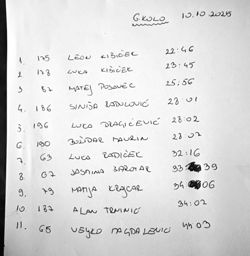 6KOLO 10.10.2025
1. 135 LEON KIŠIČEK 22:46
2. 128 LUKA KIŠIČEK 23:45
3 82 MATEJ POSAVEC 25:56
4. 186 SINIŠA RADULOVIĆ 28 01
5 196 LUKA DRAGIČEVIĆ 28:02
6 190 BOŽIDAR MAVRIN 28 07
7. 63 LUKA RADIČEK 32:16
8. 67 JASMINA 33 39
9. 79 MATIJA KRAJCAR 34 06
10. 187 ALAN TRNINIĆ 34:02
11. 65 VELJKO MAGDALENIĆ 44 03